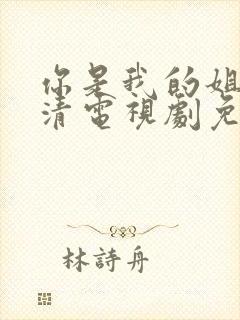 你是我的姐
清電視劇免
林詩舟